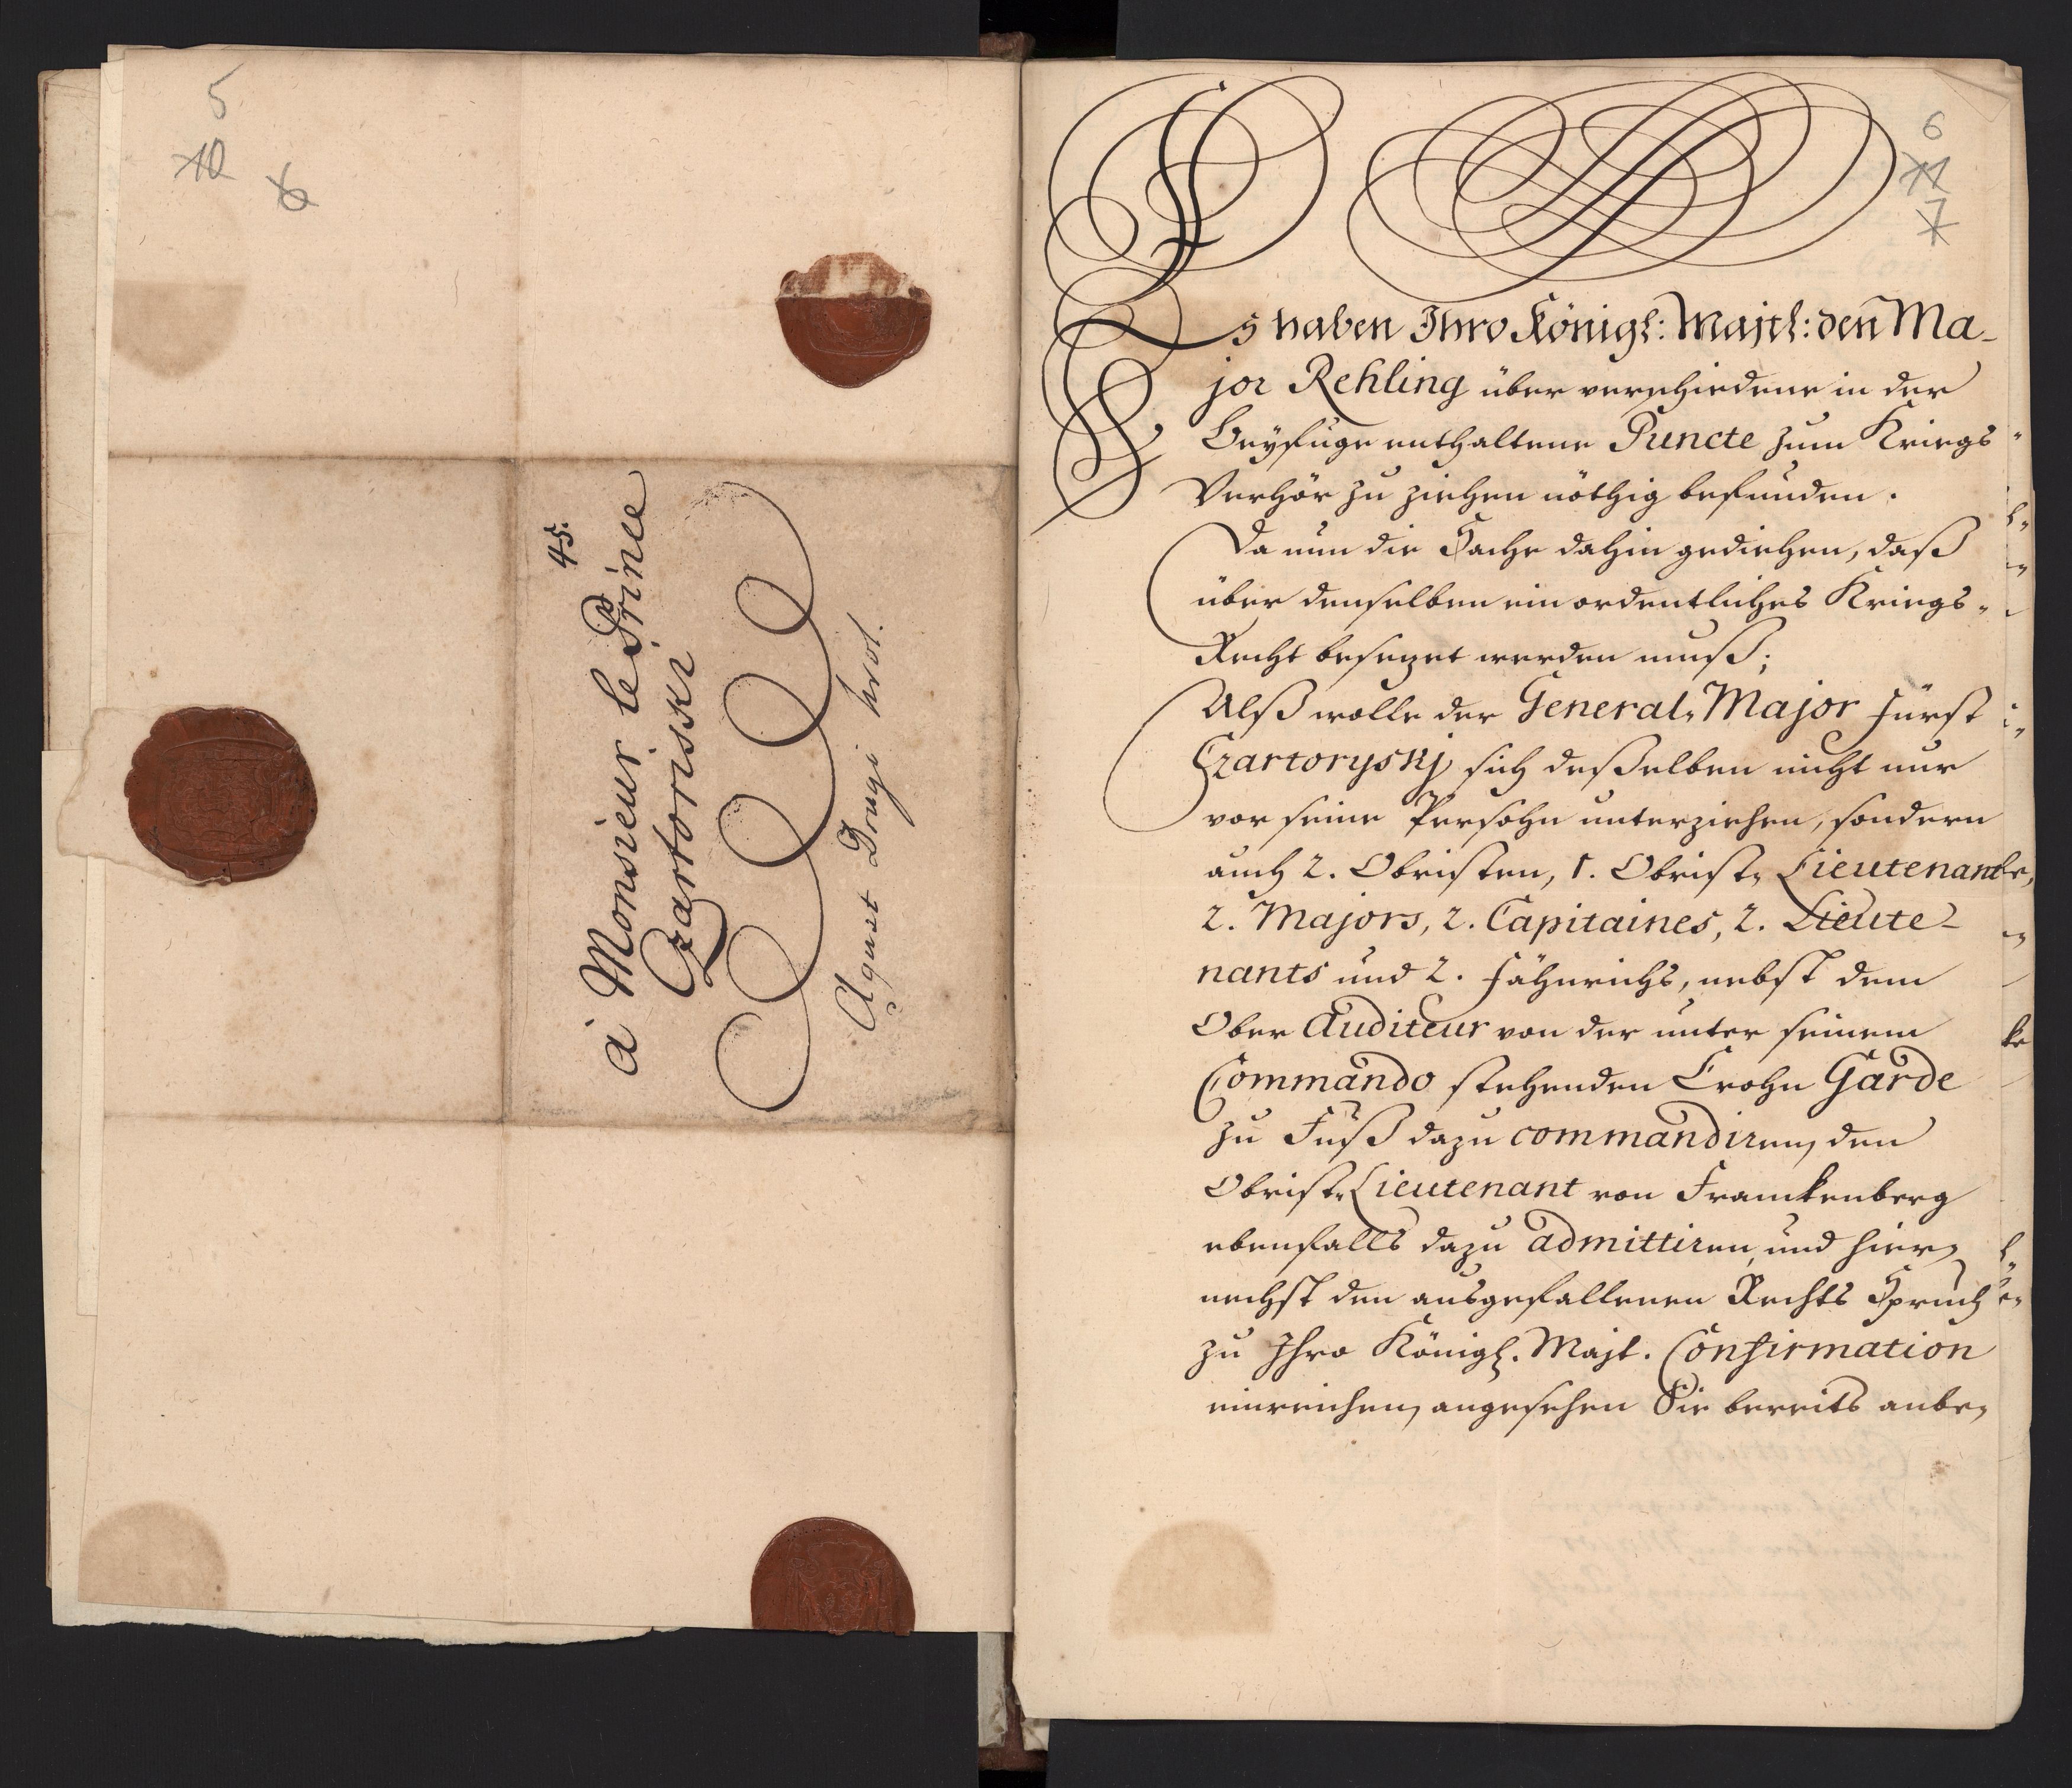 5
10
6
45.
à Monsieur le Prince
Czartoriski
Agust Drugi krol.
6
11
7
Es haben Ihro Königl: Majtl: den Ma-
jor Rehling über verschiedene in der
Beyfuge enthaltene Puncte zum Kriegs
Verhör zu ziehen nöthig befunden.
Da nun die Sache dahin gediehen, daß
über denselben ein ordentliches Kriegs-
Recht besezet werden muß;
Alß wolle der General-Major Fürst
Czartoryskj sich deßelben nicht nur
vor seine Persohn unterziehen, sondern
auch 2. Obristen, 1. Obrist-Lieutenant,
2. Majors, 2. Capitaines, 2. Lieute-
nants und 2. Fähnrichs, nebst dem
Ober Auditeur von der unter seinem
Commando stehenden Crohn Garde
zu Fuß dazu commandiren, den
Obrist-Lieutenant von Franckenberg
ebenfalls dazu admittiren, und hier-
nechst den ausgefallenen Rechts Spruch
zu Ihro Königl. Majt. Confirmation
einreichen, angesehen Sie bereits anbe-